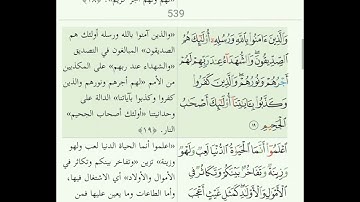 لهم ولهم اجر كريم». ﴿١٨﴾
539
وَالَّذِينَ ءَامَنُوا بِاللَّهِ وَرُسُلِهِ أُولَٰئِكَ هُمُ
الصِّدِّيقُونَ وَالشُّهَدَاءُ عِندَ رَبِّهِمْ لَهُمْ
أَجْرُهُمْ وَنُورُهُمْ وَالَّذِينَ كَفَرُوا
وَكَذَّبُوا بِـَٔايَٰتِنَا أُولَٰئِكَ أَصْحَٰبُ
الْجَحِيمِ ١٩
«والذين آمنوا بالله ورسله أولئك هم
الصديقون» المبالغون في التصديق
«والشهداء عند ربهم» على المكذبين
من الأمم «لهم أجرهم ونورهم والذين
كفروا وكذبوا بآياتنا» الدالة على
وحدانيتنا «أولئك أصحاب الجحيم»
النار. ﴿١٩﴾
اعْلَمُوا أَنَّمَا الْحَيَوٰةُ الدُّنْيَا لَعِبٌ وَلَهْوٌ
وَزِينَةٌ وَتَفَاخُرٌ بَيْنَكُمْ وَتَكَاثُرٌ فِي
الْأَمْوَٰلِ وَالْأَوْلَٰدِ كَمَثَلِ غَيْثٍ أَعْجَبَ
«اعلموا أنما الحياة الدنيا لعب ولهو
وزينة» تزين «وتفاخر بينكم وتكاثر في
الأموال والأولاد» أي الاشتغال فيها،
وأما الطاعات وما يعين عليها فمن